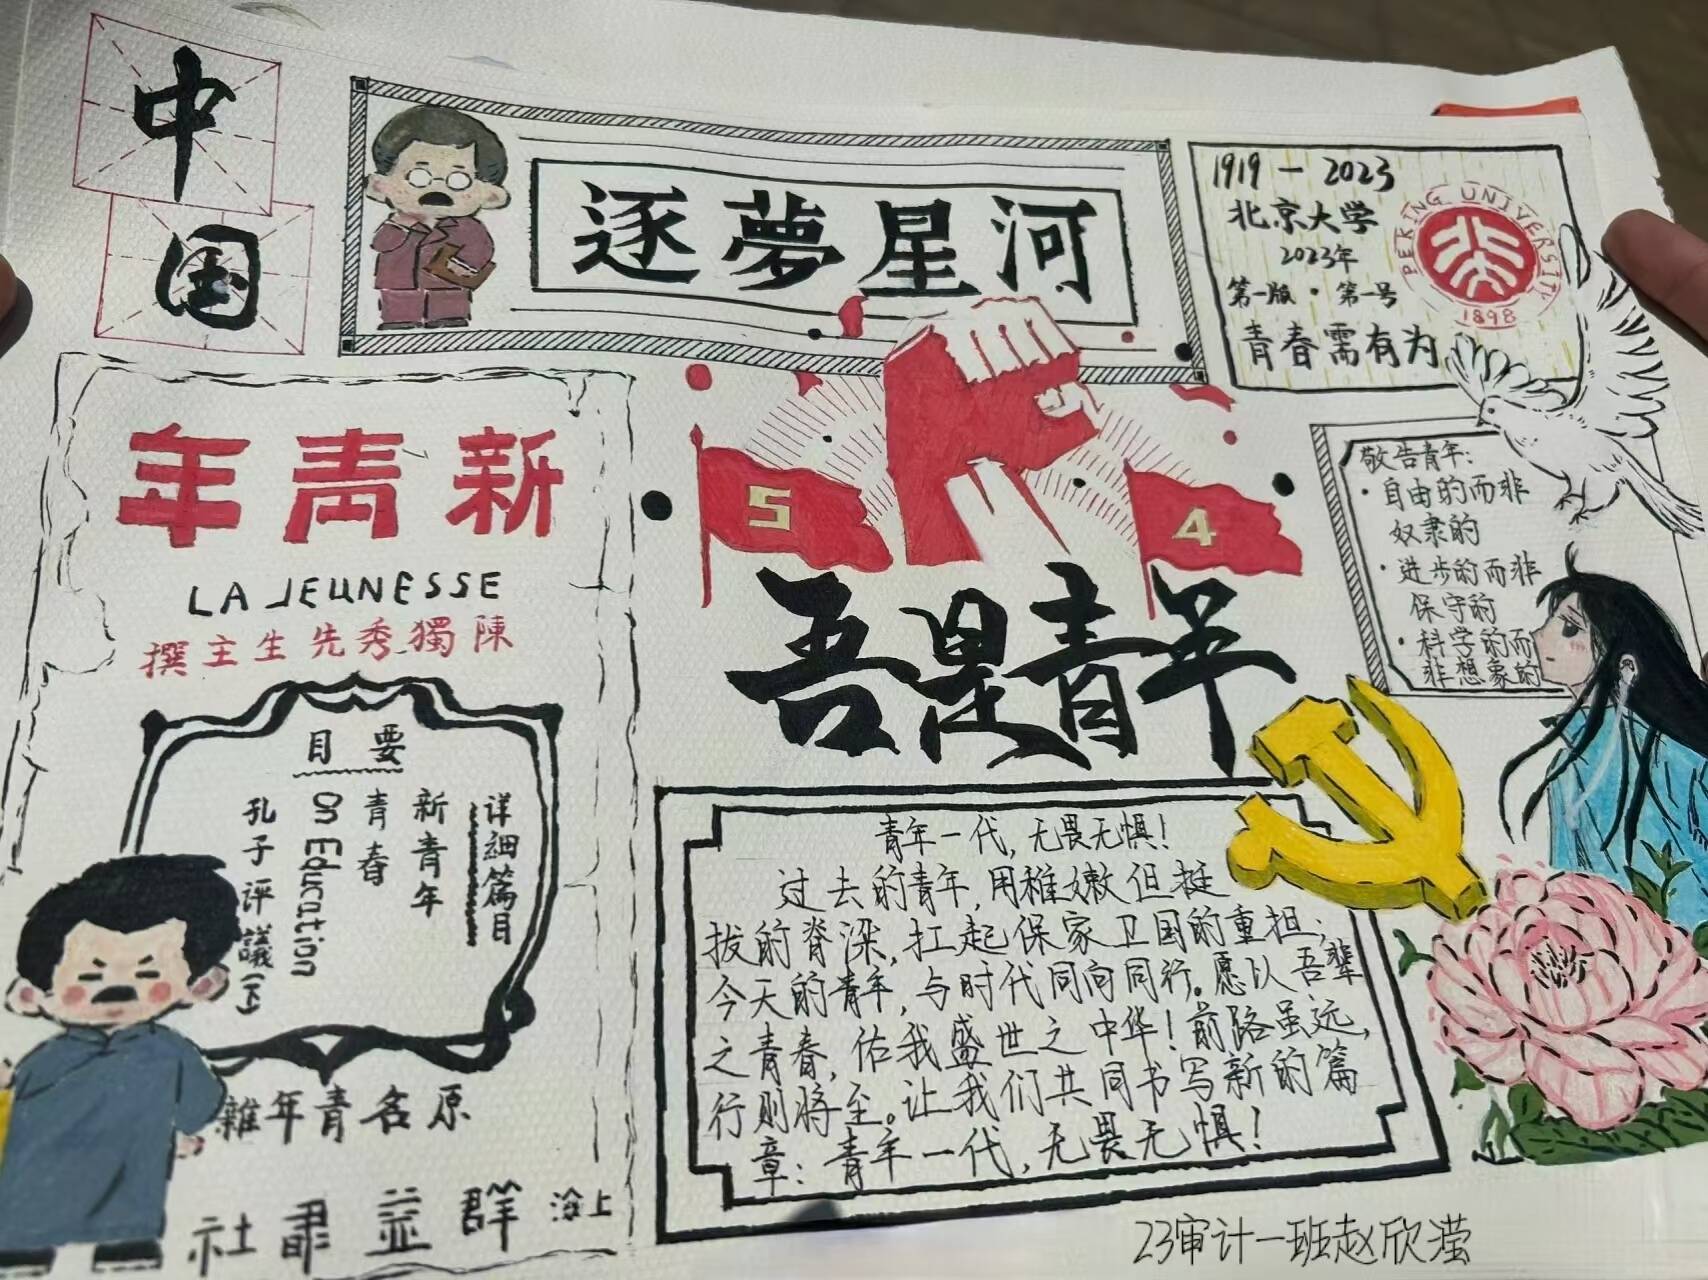 中
国
逐夢星河
1919-2023
北京大学
2023年
第一版·第一号
青春需有为
PEKING UNIVERSITY
1898
年青新
LA JEUNESSE
撰主生先秀獨陳
目要
详細篇目
新青年
青春
On Education
孔子评議(下)
雜年青名原
社書益群海上
5
4
吾是青年
敬告青年:
·自由的而非
奴隶的
·进步的而非
保守的
·科学的而
非想象的
青年一代,无畏无惧!
过去的青年,用稚嫩但挺
拔的脊梁,扛起保家卫国的重担;
今天的青年,与时代同向同行。愿以吾辈
之青春,佑我盛世之中华!前路虽远,
行则将至。让我们共同书写新的篇
章:青年一代,无畏无惧!
23审计一班赵欣滢